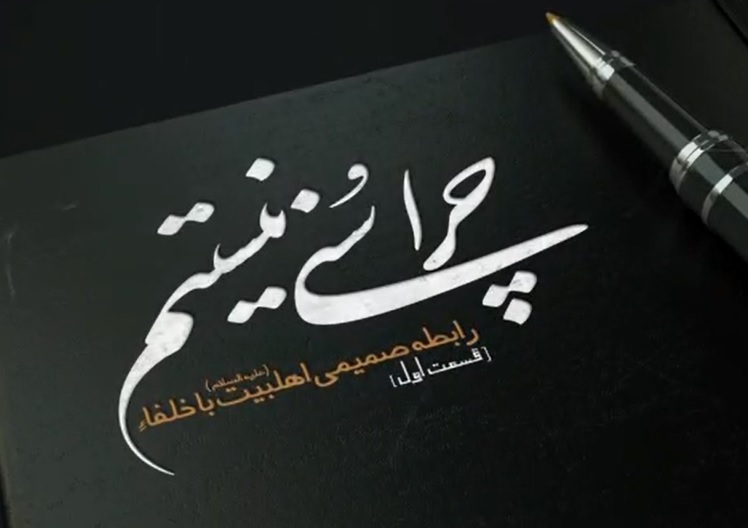 چرا سُنی نیستم
رابطه صمیمی اهلبیت (علیه السلام) با خلفاءِ
[قسمت اول]